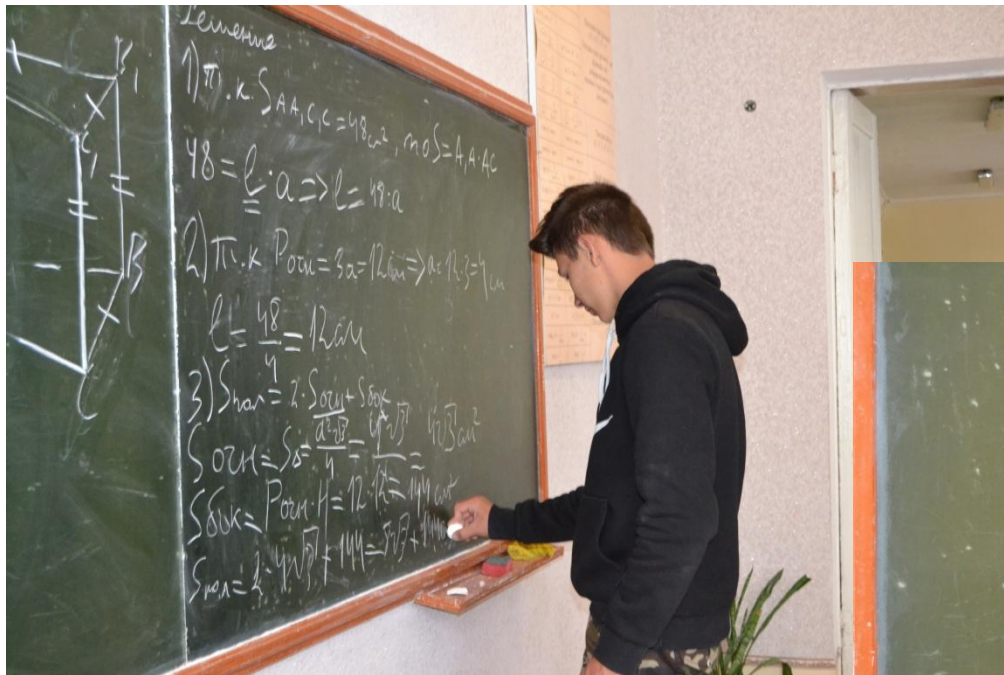 Решение
1) т.к. SAA₁C₁C = 48см², то S = A₁A·AC
48 = l·a => l = 48:a
2) т.к Pосн = 3a = 12см => a = 12:3 = 4см
l = 48/4 = 12см
3) Sпол = 2·Sосн + Sбок
Sосн = S△ = a²√3/4 = 4²√3/4 = 4√3 см²
Sбок = Pосн·H = 12·12 = 144 см²
Sпол = 2·4√3 + 144 = 8√3 + 144
B₁
C₁
B
C